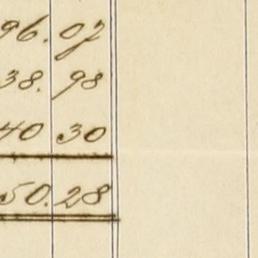 96.07
38.98
40 30
50.28